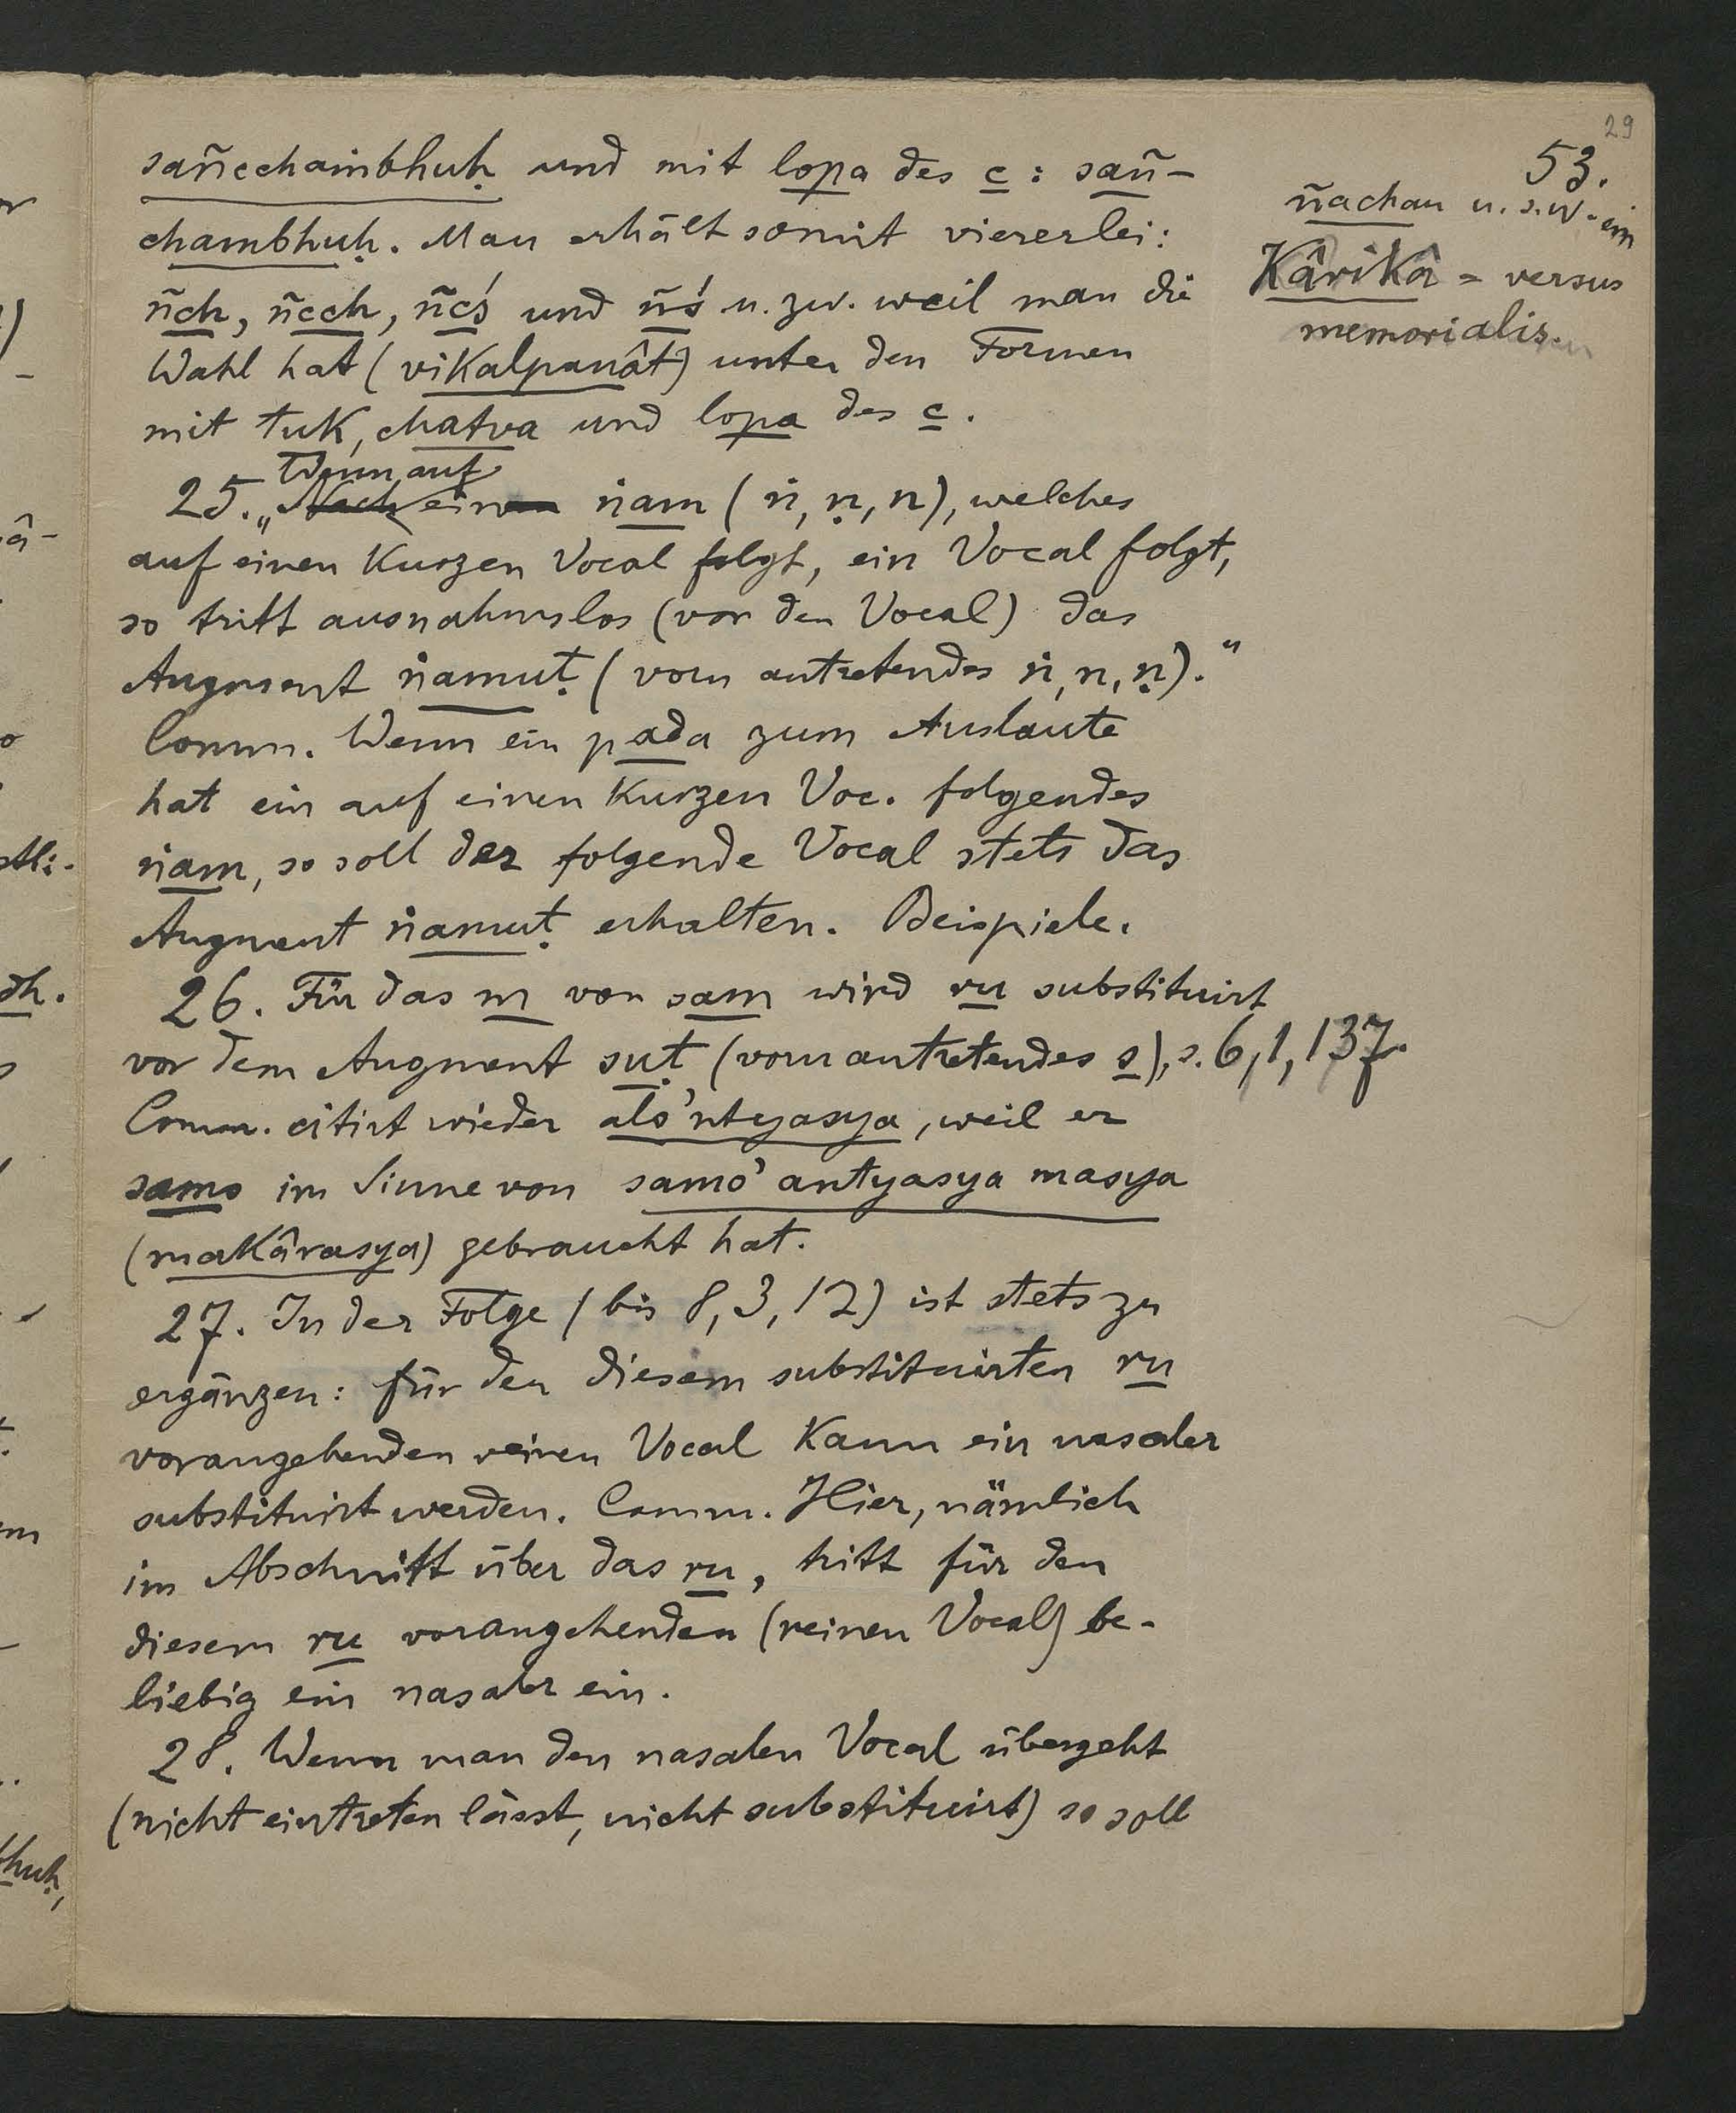 29
53.
sañcchaṁbhuḥ und mit lopa des c : sañ-
chambhuḥ. Man erhält somit viererlei:
ñch, ñcch, ñcś und ñś u. zw. weil man die
Wahl hat (vikalpanât) unter den Formen
mit tuk, chatva und lopa des c.
ñachau u. s. w. ein
Kârikâ = versus
memorialis.
Wenn auf
25. „Nach einen ṅam (ṅ, ṇ, n), welches
auf einen kurzen Vocal folgt, ein Vocal folgt,
so tritt ausnahmslos (vor den Vocal) das
Augment ṅamuṭ (vorn antretendes ṅ, n, ṇ).“
Comm. Wenn ein pada zum Auslaute
hat ein auf einen kurzen Voc. folgendes
ṅam, so soll der folgende Vocal stets das
Augment ṅamuṭ erhalten. Beispiele.
26. Für das m von sam wird ru substituirt
vor dem Augment suṭ (vorn antretendes s), s. 6, 1, 137.
Comm. citirt wieder alo'ntyasya, weil er
samo im Sinne von samo' antyasya masya
(makârasya) gebraucht hat.
27. In der Folge (bis 8, 3, 12) ist stets zu
ergänzen: für den diesem substituirten ru
vorangehenden reinen Vocal kann ein nasaler
substituirt werden. Comm. Hier, nämlich
im Abschnitt über das ru, tritt für den
diesem ru vorangehenden (reinen Vocal) be-
liebig ein nasaler ein.
28. Wenn man den nasalen Vocal übergeht
(nicht eintreten lässt, nicht substituirt) so soll